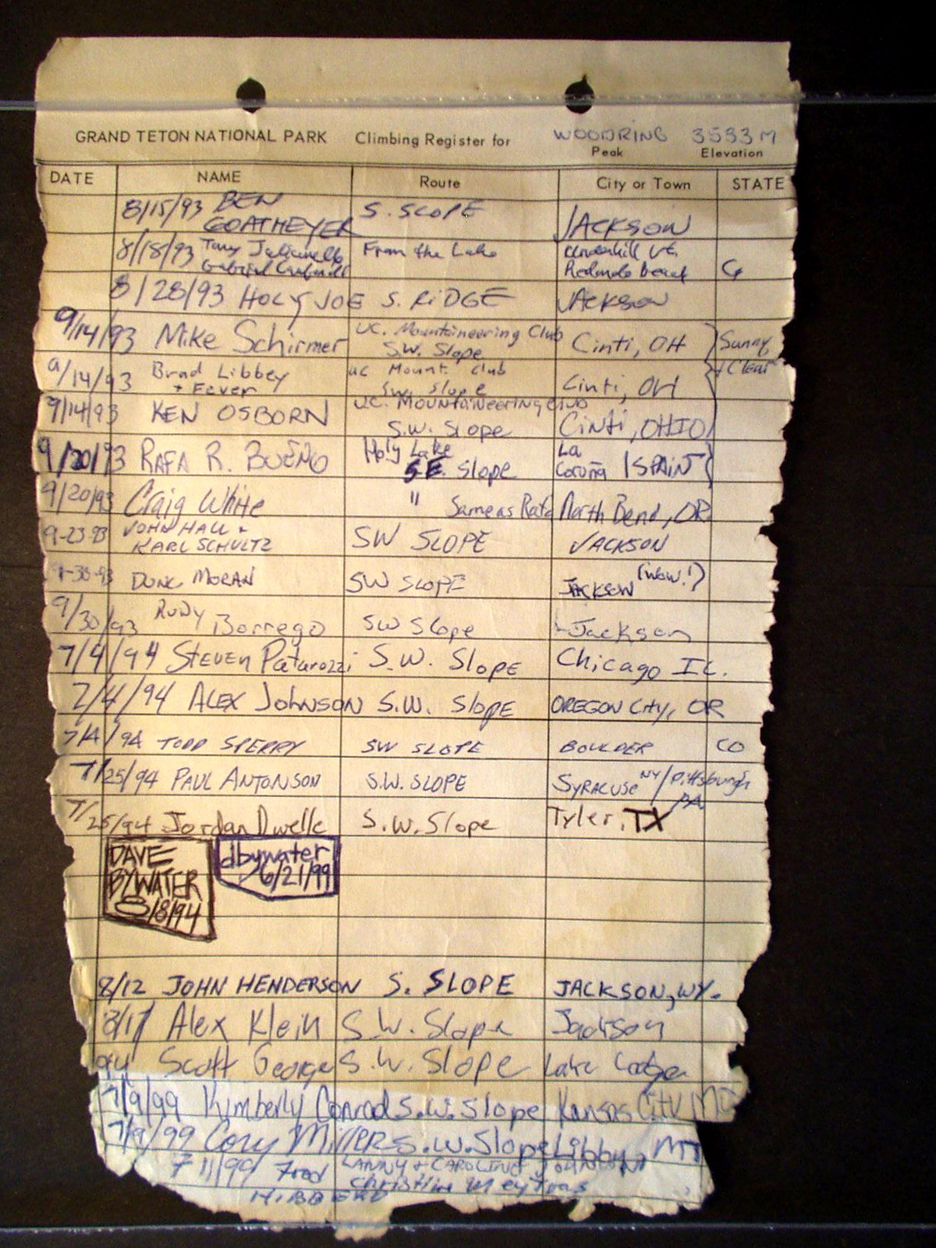 GRAND TETON NATIONAL PARK Climbing Register for WOODRING 3533 M
Peak Elevation
DATE NAME Route City or Town STATE
8/15/93 BEN GOATMEYER S. SLOPE JACKSON
8/18/93 Tony From the Lake
Gabriel Redondo Beach CA
8/28/93 HOLY JOE S. RIDGE JACKSON
9/14/93 Mike Schirmer UC. Mountaineering Club S.W. Slope Cinti, OH Sunny + Clear
9/14/93 Brad Libbey + Fever UC Mount. Club SW. Slope Cinti, OH
9/14/93 KEN OSBORN UC. Mountaineering Club S.W. Slope Cinti, OHIO
9/20/93 RAFA R. BUEÑO Holy Lake S.E. Slope La Coruña (SPAIN)
9/20/93 Craig White " Same as Rafa North Bend, OR
9-23-93 JOHN HALL + KARL SCHULTZ SW SLOPE JACKSON
9-30-93 DUNC MORAN SW SLOPE JACKSON (WOW!)
9/30/93 RUDY Borrego SW Slope Jackson
7/4/94 STEVEN Patarozzi S.W. Slope Chicago IL.
7/4/94 ALEX JOHNSON S.W. Slope OREGON CITY, OR
7/4/94 TODD SPERRY SW SLOPE BOULDER CO
7/25/94 PAUL ANTONSON S.W. SLOPE SYRACUSE NY/Pittsburgh PA
7/25/94 Jordan Dwelle S.W. Slope Tyler, TX
DAVE BYWATER 8/8/94
dbywater 6/21/99
8/12 JOHN HENDERSON S. SLOPE JACKSON, WY.
8/17 Alex Klein S.W. Slope Jackson
Scott George S.W. Slope Lake Lodge
7/9/99 Kimberly Conrad S.W. Slope Kansas City MO
7/9/99 Cory Miller S.W. Slope Libby, MT
7/11/99 Fred HIBBERD LANNY + CAROLINE JOHNSON
Christine